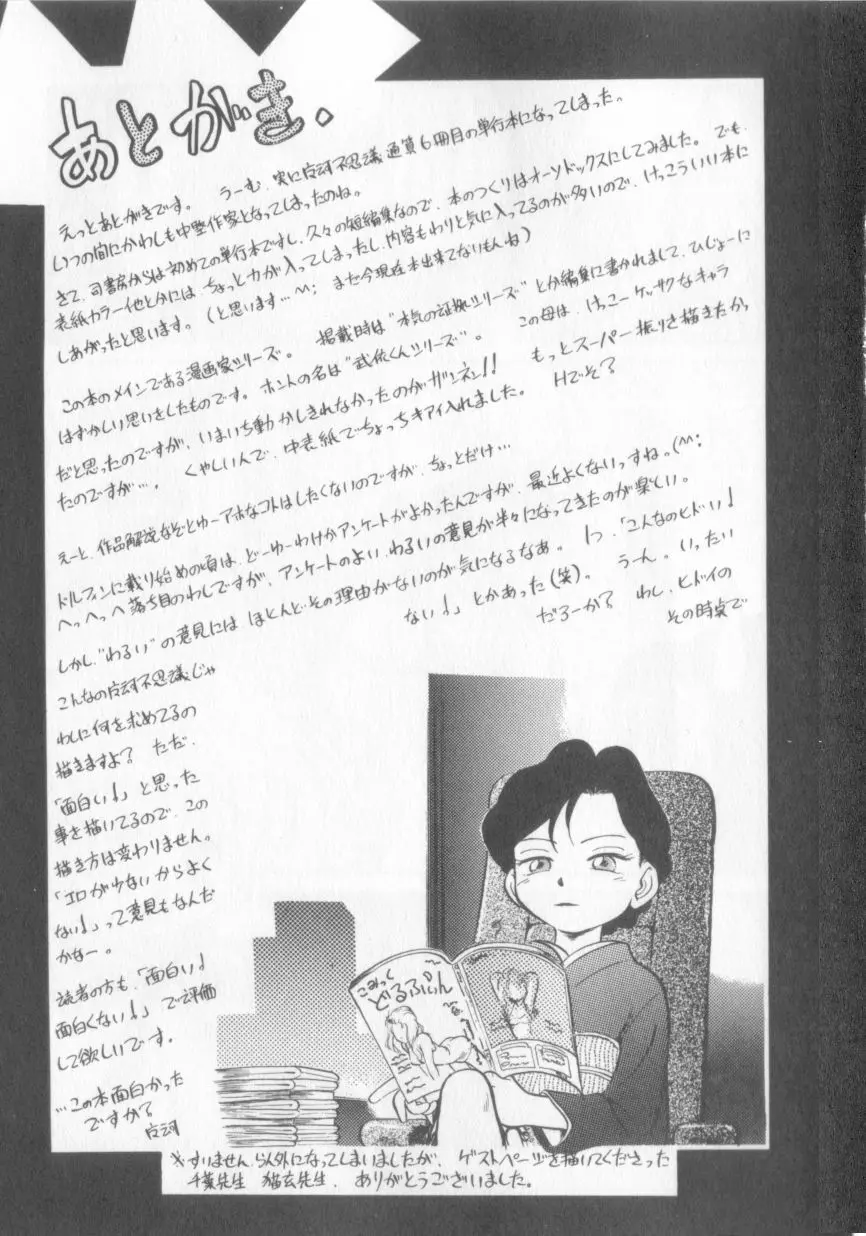 あとがき.
えっとあとがきです。 うーむ、実に 不思議 通算6冊目の単行本になってしまった。
いつの間にかわしも中堅作家となってしまったのね。
さて、司書房からは初めての単行本ですし、久々の短編集なので、本のつくりはオーソドックスにしてみました。でも、
表紙カラー他とかには、ちょっと力が入ってしまったし、内容もわりと気に入ってるのが多いので、けっこういい本に
しあがったと思います。(と思います…^^; まだ今現在本出来てないもんね)
この本のメインである漫画家シリーズ。 掲載時は"本気の証拠シリーズ"とか編集に書かれまして、ひじょーに
はずかしい思いをしたものです。ホントの名は"武依くんシリーズ"。 この母は、けっこーケッサクなキャラ
だと思ったのですが、いまいち動かしきれなかったのがザンネン!! もっとスーパー振りを描きたかっ
たのですが…。 くやしいんで、中表紙でちょっちキアイ入れました。 Hでそ?
えーと、作品解説なぞとゆーアホなコトはしたくないのですが、ちょっとだけ…
ドルフィンに載り始めの頃は、どーゆーわけかアンケートがよかったんですが、最近よくないっすね。(^^;
へっへっへ落ち目のわしですが、アンケートのよい、わるいの意見が半々になってきたのが楽しい。
しかし"わるい"の意見には、ほとんどその理由がないのが気になるなあ。 1つ、「こんなのヒドい!
こんなの 不思議じゃない!」とかあった(笑)。 うーん。いったい
わしに何を求めてるのだろーか? わし、ヒドイの
描きますよ? ただ、その時点で
「面白い!」と思った
事を描いてるので、この
描き方は変わりません。
「エロが少ないからよく
ない!」って意見もなんだ
かなー。
読者の方も、「面白い!
面白くない!」で評価
して欲しいです。
…この本面白かった
ですか?
こみっく
どるぷふん
※すいません、らん外になってしまいましたが、ゲストページを描いてくださった
千葉先生 猫玄先生、ありがとうございました。